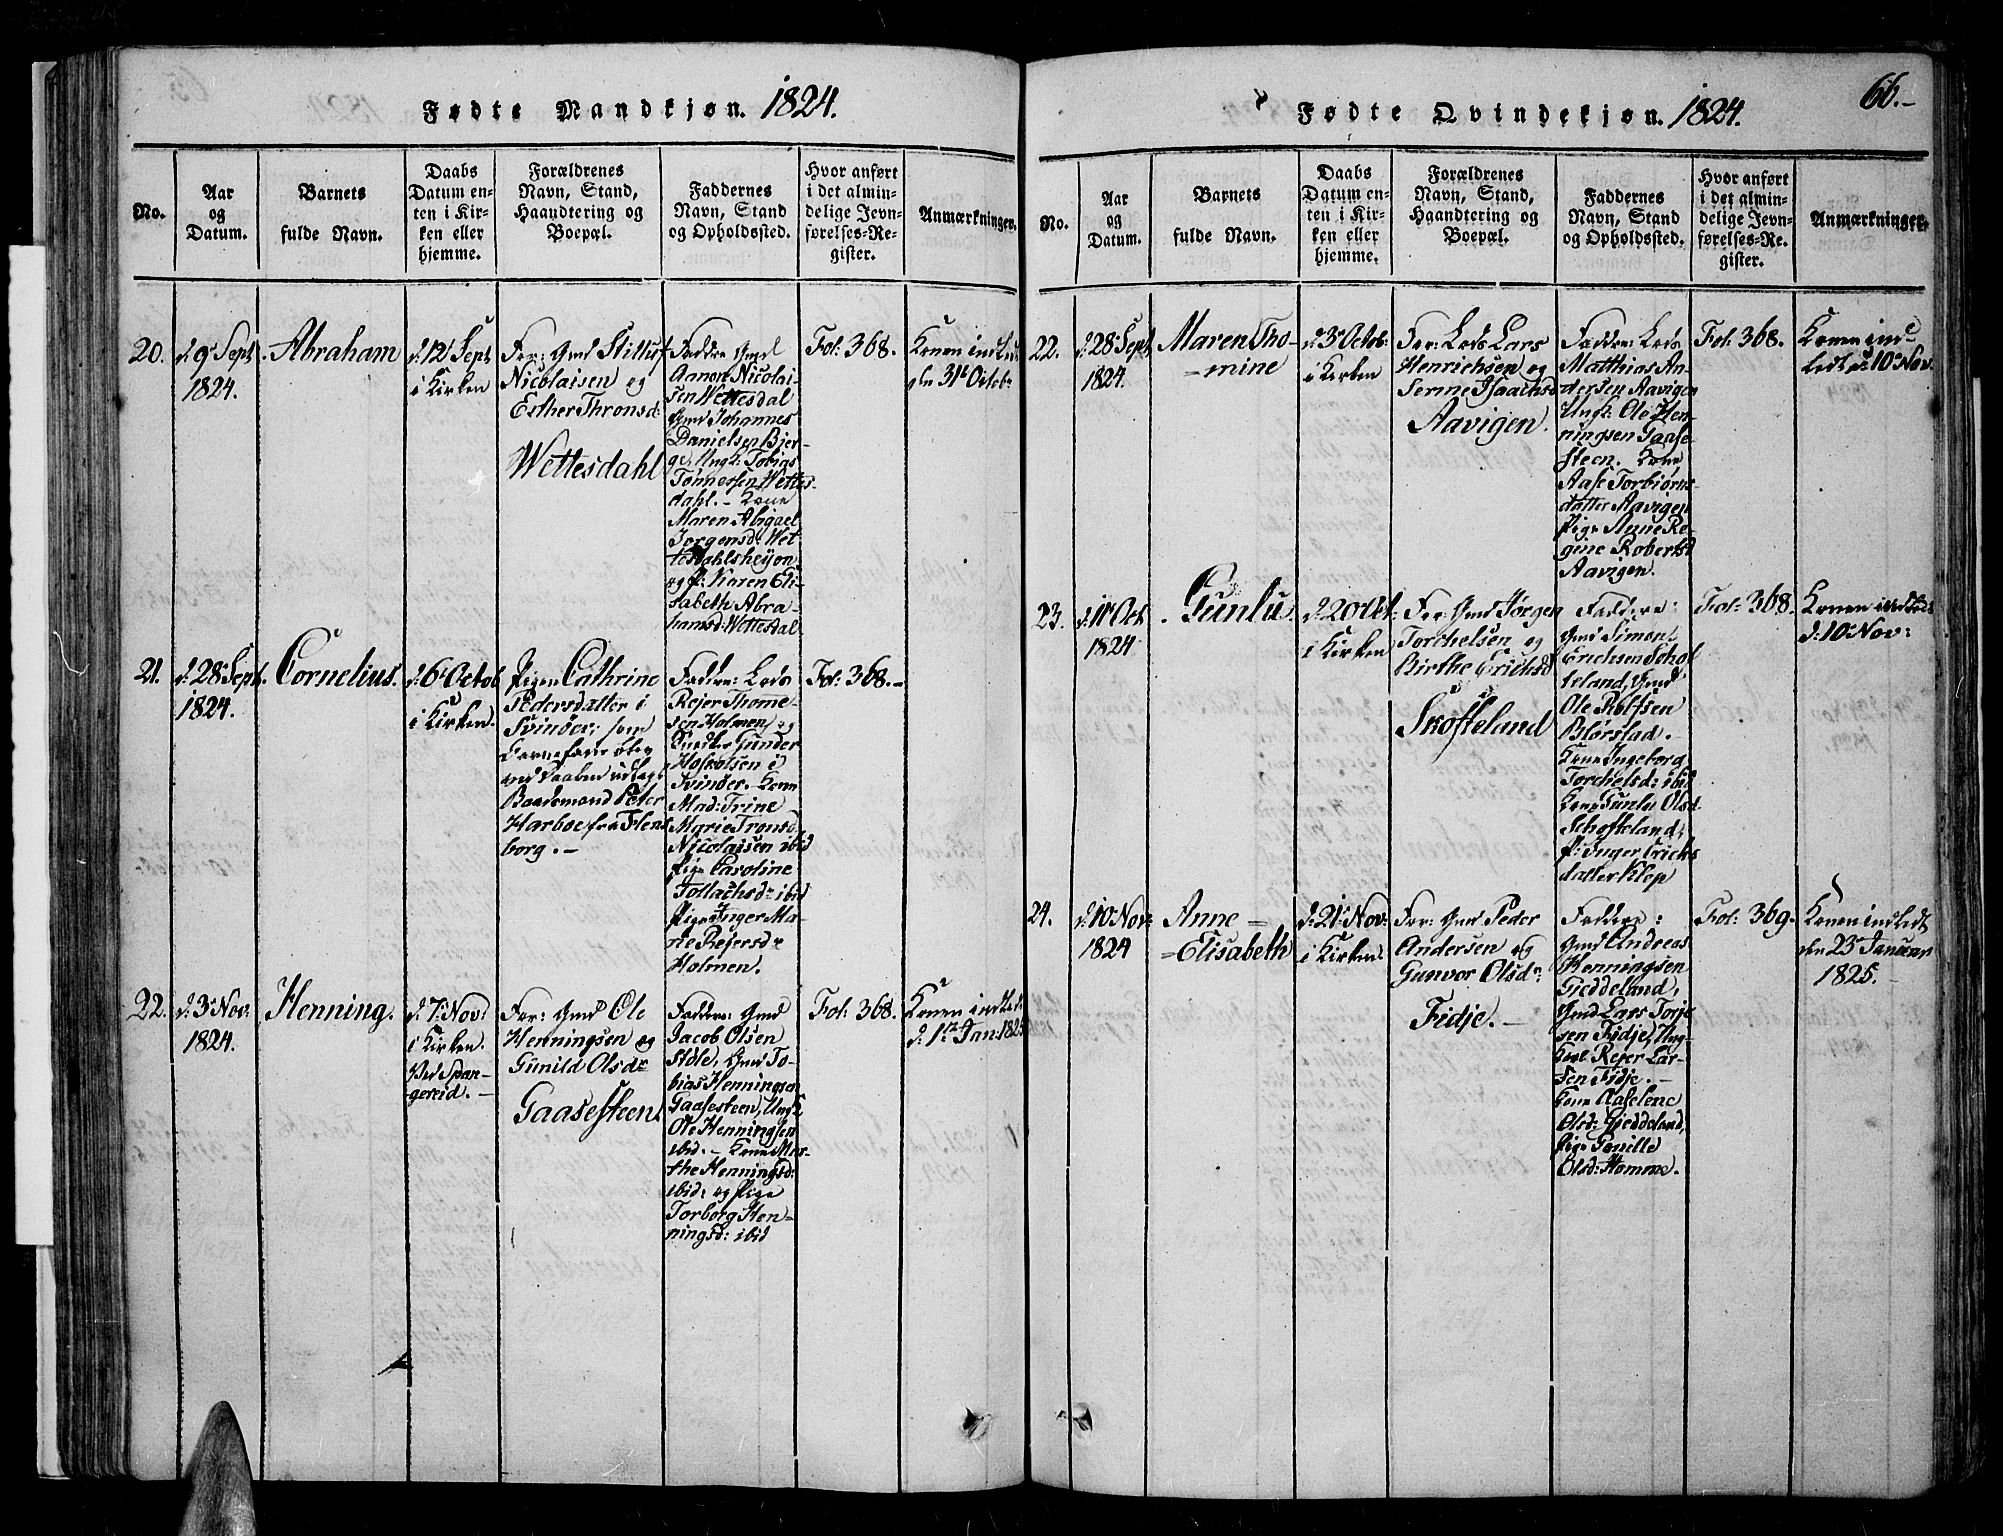 Fødte Mandkjøn. 1824.
No.
Aar
og
Datum.
Barnets
fulde Navn.
Daabs
Datum en-
ten i Kir-
ken eller
hjemme.
Forældrenes
Navn, Stand,
Haandtering og
Boepæl.
Faddernes
Navn, Stand
og Opholdssted.
Hvor anført
i det almin-
delige Jevn-
førelses-Re-
gister.
Anmærkninger.
20.
d 9 Sept
1824.
Abraham
d. 12 Sept
i Kirken
For: Gmd Stilluf
Nicolaisen og
Esther Thronsd:
Wettesdahl
Faddre Gmd
Aanon Nicolai-
sen Wettesdal
Gmd Johannes
Danielsen Bjer-
ge, Ungk: Tobias
Tønnessen Wettes-
dahl. - Kone
Maren Abigael
Jorgensd: Wet-
tesdahlsheijen
og P: Karen Eli-
sabeth Abra-
hamsd: Wettesdal
Fol: 368.
Konen indledt
den 31 Octobr
21.
d. 28 Sept.
1824.
Cornelius.
d. 6 Octob
i Kirken.
Pigen Cathrine
Pedersdatter i
Svinöer, som
Barnefader blev
ved Daaben udlagt
Baadsmand Peter
Harboe fra Flens
borg. -
Faddre: Lods
Rejer Thomme-
sen Holmen, og
Gunder
i
Svinöer. Kone
Mad: Trine
Marie Tronsd.
Nicolaisen ibid
Pige Caroline
Tollachsdr ibid
Pige Inger Ma-
rie Rejersdr
Holmen.
Fol: 368. -
22.
d. 3 Nov:
1824.
Henning.
d. 7 Nov:
i Kirken.
Ved Span-
gereid. -
For: Gmd Ole
Henningsen og
Gunild Olsdr
Gaasesteen.
Faddere: Gmd
Jacob Olsen
Stöle, Gmd To-
bias Henningsen
Gaasesteen, Ungk:
Ole Henningsen
ibid. - Kone Mar-
the Henningsd:
ibid: og Pige
Torborg Hen-
ningsd: ibid
Fol: 368.
Konen indledt
d: 1 Jan: 1825
66. -
Fødte Qvindekjøn. 1824.
No.
Aar
og
Datum.
Barnets
fulde Navn.
Daabs
Datum en-
ten i Kir-
ken eller
hjemme.
Forældrenes
Navn, Stand,
Haandtering og
Boepæl.
Faddernes
Navn, Stand
og Opholdssted.
Hvor anført
i det almin-
delige Jevn-
førelses-Re-
gister.
Anmærkninger.
22.
d. 28 Sept
1824.
Maren Tho-
= mine
d. 3 Octob:
i Kirken
For: Lods Lars
Henrichsen og
Serine Isaachsd
Aavigen.
Faddre: Lods
Matthias An-
dersen Aavigen
Ungk: Ole Hen-
ningsen Gaase-
steen. Kone
Aase Torbiørns-
datter Aavigen
Pige Anne Re-
gine Robertsd
Aavigen.
Fol: 368.
Konen ind-
ledt d: 10 Nov.
23.
d. 11 Oct.
1824.
Gunlu.
d. 22 Oct:
i Kirken
For: Gmd Jörgen
Torchelsen og
Birthe Erichsd
Skofteland
Faddere:
Gmd Simon
Erichsen Schof-
teland, Gmd
Ole Rolfsen
Biörstad. -
Kone Ingeborg
Torchelsd: ibid
Kone Gunlu Olsd.
Schofteland,
P: Inger Erichs
datter Klep
Fol: 368.
Konen indledt
d: 10 Nov:
24.
d: 10 Nov:
1824
Anne =
= Elisabeth
d: 21 Nov:
i Kirken.
For: Gmd Peder
Andersen og
Gunvor Olsdr
Fidje. -
Faddere:
Gmd Andreas
Henningsen
Gieddeland,
Gmd Lars Torje
sen Fidje, Ung-
karl Rejer Lar-
sen Fidje. -
Kone Aaselene
Olsd: Gieddeland,
Pige Pernille
Olsd: Homme.
Fol: 369.
Konen indledt
den 23 Januar
1825. -